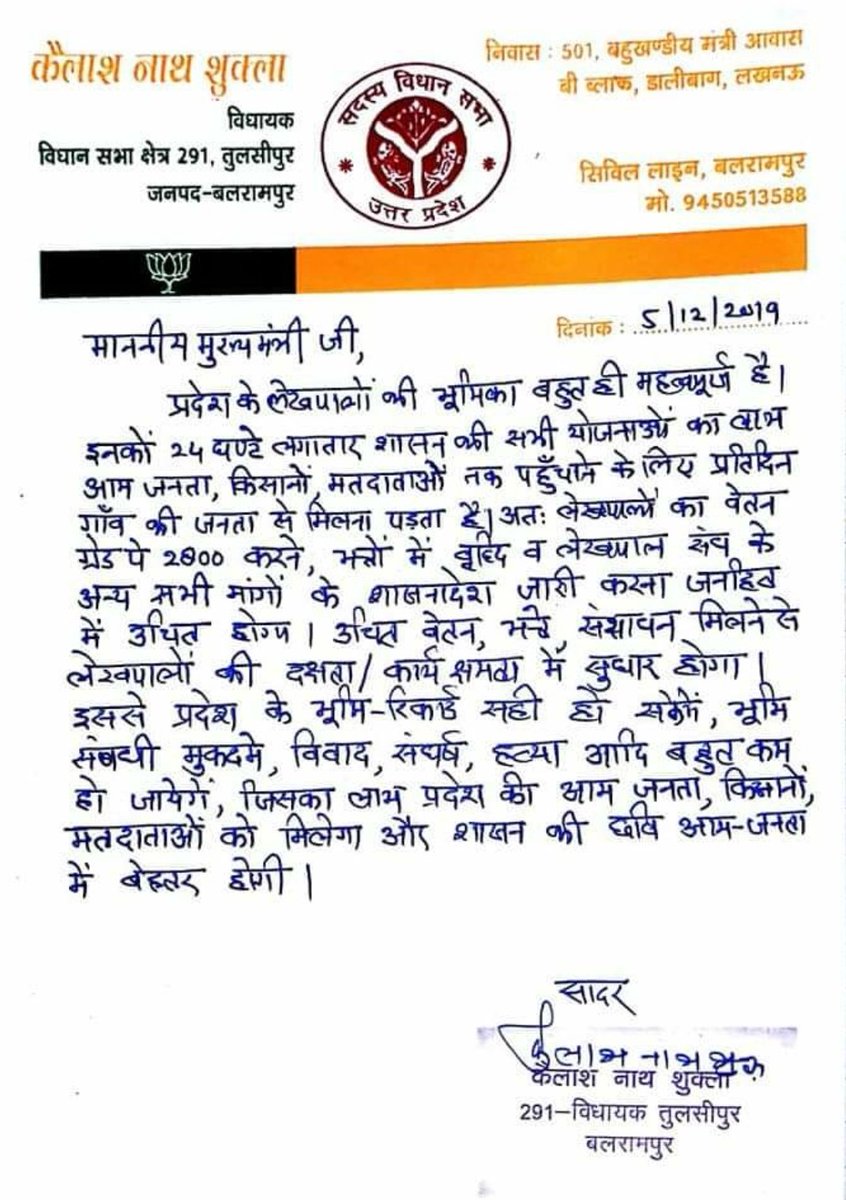 कैलाश नाथ शुक्ला
विधायक
विधान सभा क्षेत्र 291, तुलसीपुर
जनपद-बलरामपुर
सदस्य विधान सभा
उत्तर प्रदेश
निवास : 501, बहुखण्डीय मंत्री आवास
बी ब्लाक, डालीबाग, लखनऊ
सिविल लाइन, बलरामपुर
मो. 9450513588
दिनांक : 5/12/2019
माननीय मुख्यमंत्री जी,
प्रदेश के लेखपालों की भूमिका बहुत ही महत्वपूर्ण है।
इनकों 24 घण्टे लगातार शासन की सभी योजनाओं का लाभ
आम जनता, किसानों, मतदाताओं तक पहुँचाने के लिए प्रतिदिन
गाँव की जनता से मिलना पड़ता है। अतः लेखपालों का वेतन
ग्रेड पे 2800 करने, भत्तों में वृद्धि व लेखपाल संघ के
अन्य सभी मांगों के शासनादेश जारी करना जनहित
में उचित होगा। उचित वेतन, भत्ते, संसाधन मिलने से
लेखपालों की दक्षता/कार्य क्षमता में सुधार होगा।
इससे प्रदेश के भूमि-रिकार्ड सही हो सकेगें, भूमि
संबधी मुकदमे, विवाद, संघर्ष, हत्या आदि बहुत कम
हो जायेगें, जिसका लाभ प्रदेश की आम जनता, किसानों,
मतदाताओं को मिलेगा और शासन की छवि आम-जनता
में बेहतर होगी।
सादर
कैलाश नाथ शुक्ल
कैलाश नाथ शुक्ला
291-विधायक तुलसीपुर
बलरामपुर